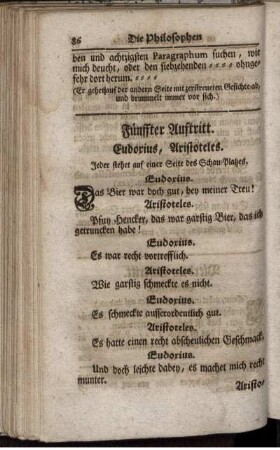 86 Die Philosophen
ben und achtzigsten Paragraphum suchen, wie
mich deucht, oder den siebzehenden ohnge-
fehr dort herum.
(Er gehet auf der andern Seite mit zerstreueten Gesichte ab,
und brummelt immer vor sich.)
Fünffter Auftritt.
Eudorius, Aristoteles.
Jeder stehet auf einer Seite des Schau-Platzes.
Eudorius.
Das Bier war doch gut, bey meiner Treu!
Aristoteles.
Pfuy Hencker, das war garstig Bier, das ich
getruncken habe!
Eudorius.
Es war recht vortrefflich.
Aristoteles.
Wie garstig schmeckte es nicht.
Eudorius.
Es schmeckte ausserordentlich gut.
Aristoteles.
Es hatte einen recht abscheulichen Geschmack.
Eudorius.
Und doch leichte dabey, es machet mich recht
munter.
Aristo-